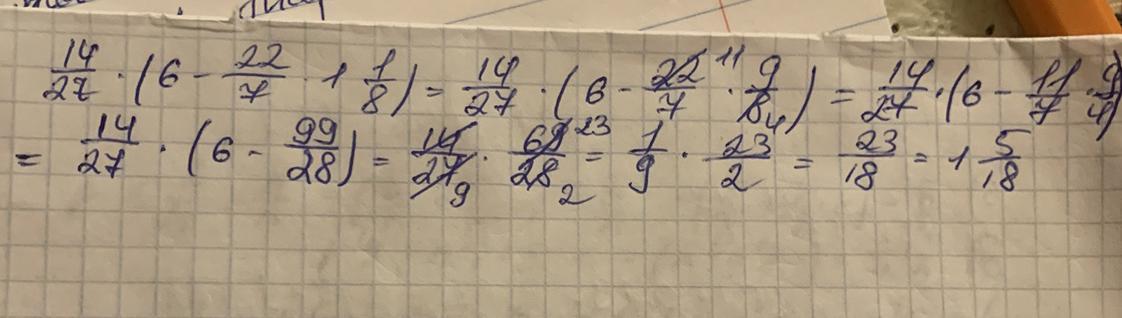 14/27 · (6 - 22/7 · 1 1/8) = 14/27 · (6 - 22 11/7 · 9/8 4) = 14/27 · (6 - 11/7 · 9/4)
= 14/27 · (6 - 99/28) = 14/27 9 · 69 23/28 2 = 1/9 · 23/2 = 23/18 = 1 5/18